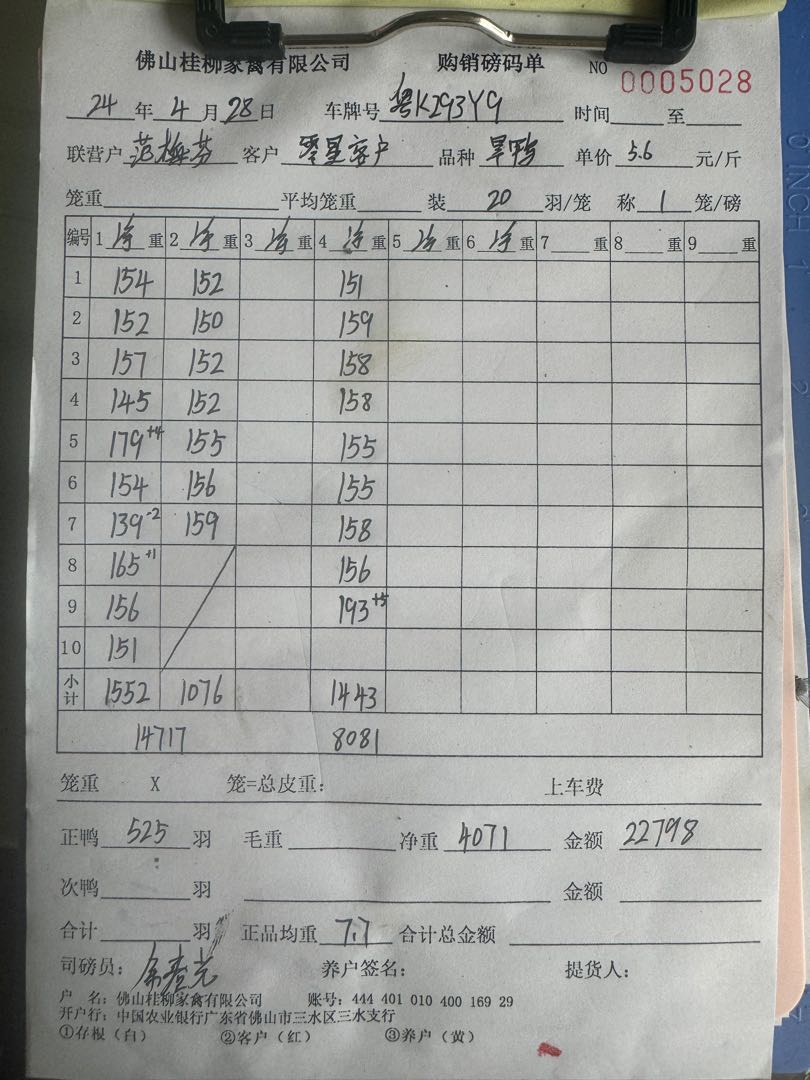 佛山桂柳家禽有限公司 购销磅码单 NO 0005028
24 年 4 月 28 日 车牌号 粤K293Y9 时间 至
联营户 范梅芬 客户 零星客户 品种 旱鸭 单价 5.6 元/斤
笼重 平均笼重 装 20 羽/笼 称 1 笼/磅
编号 1 净 重 2 净 重 3 净 重 4 净 重 5 净 重 6 净 重 7 重 8 重 9 重
1 154 152 151
2 152 150 159
3 157 152 158
4 145 152 158
5 179+4 155 155
6 154 156 155
7 139-2 159 158
8 165+1 156
9 156 193+5
10 151
小计 1552 1076 1443
14717 8081
笼重 X 笼=总皮重： 上车费
正鸭 525 羽 毛重 净重 4071 金额 22798
次鸭 羽 金额
合计 羽 正品均重 7.7 合计总金额
司磅员： 养户签名： 提货人：
户 名：佛山桂柳家禽有限公司 账号：444 401 010 400 169 29
开户行：中国农业银行广东省佛山市三水区三水支行
①存根（白） ②客户（红） ③养户（黄）